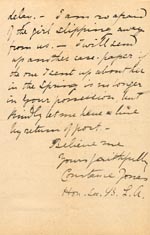 delay. - I am so afraid
of the girl slipping away
from us. - I will send
up another case-paper if
the one I sent up about her
in the Spring is no longer
in your possession but
kindly let me have a line
by return of post. -
Believe me
Yours faithfully
Constance Jones
Hon. Sec.